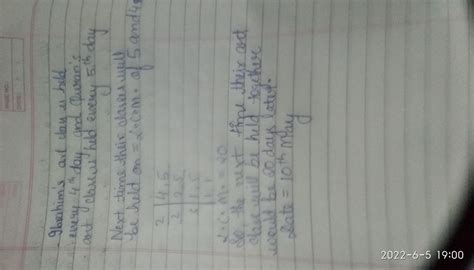 Ibrahim's art class is held
every 4th day and Purvi's
art class is held every 5th day
Next time their classes will
be held on = L.C.M. of 5 and 4
2 | 4, 5
2 | 2, 5
5 | 1, 5
1, 1
L.C.M. = 20
So the next time their art
class will be held together
would be 20 days later.
Date = 10th May
2022-6-5 19:00